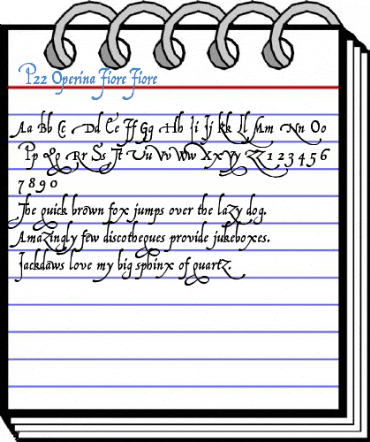 P22 Operina Fiore Fiore
Aa Bb Cc Dd Ee Ff Gg Hh Ii Jj Kk Ll Mm Nn Oo
Pp Qq Rr Ss Tt Uu Vv Ww Xx Yy Zz 1 2 3 4 5 6
7 8 9 0
The quick brown fox jumps over the lazy dog.
Amazingly few discotheques provide jukeboxes.
Jackdaws love my big sphinx of quartz.